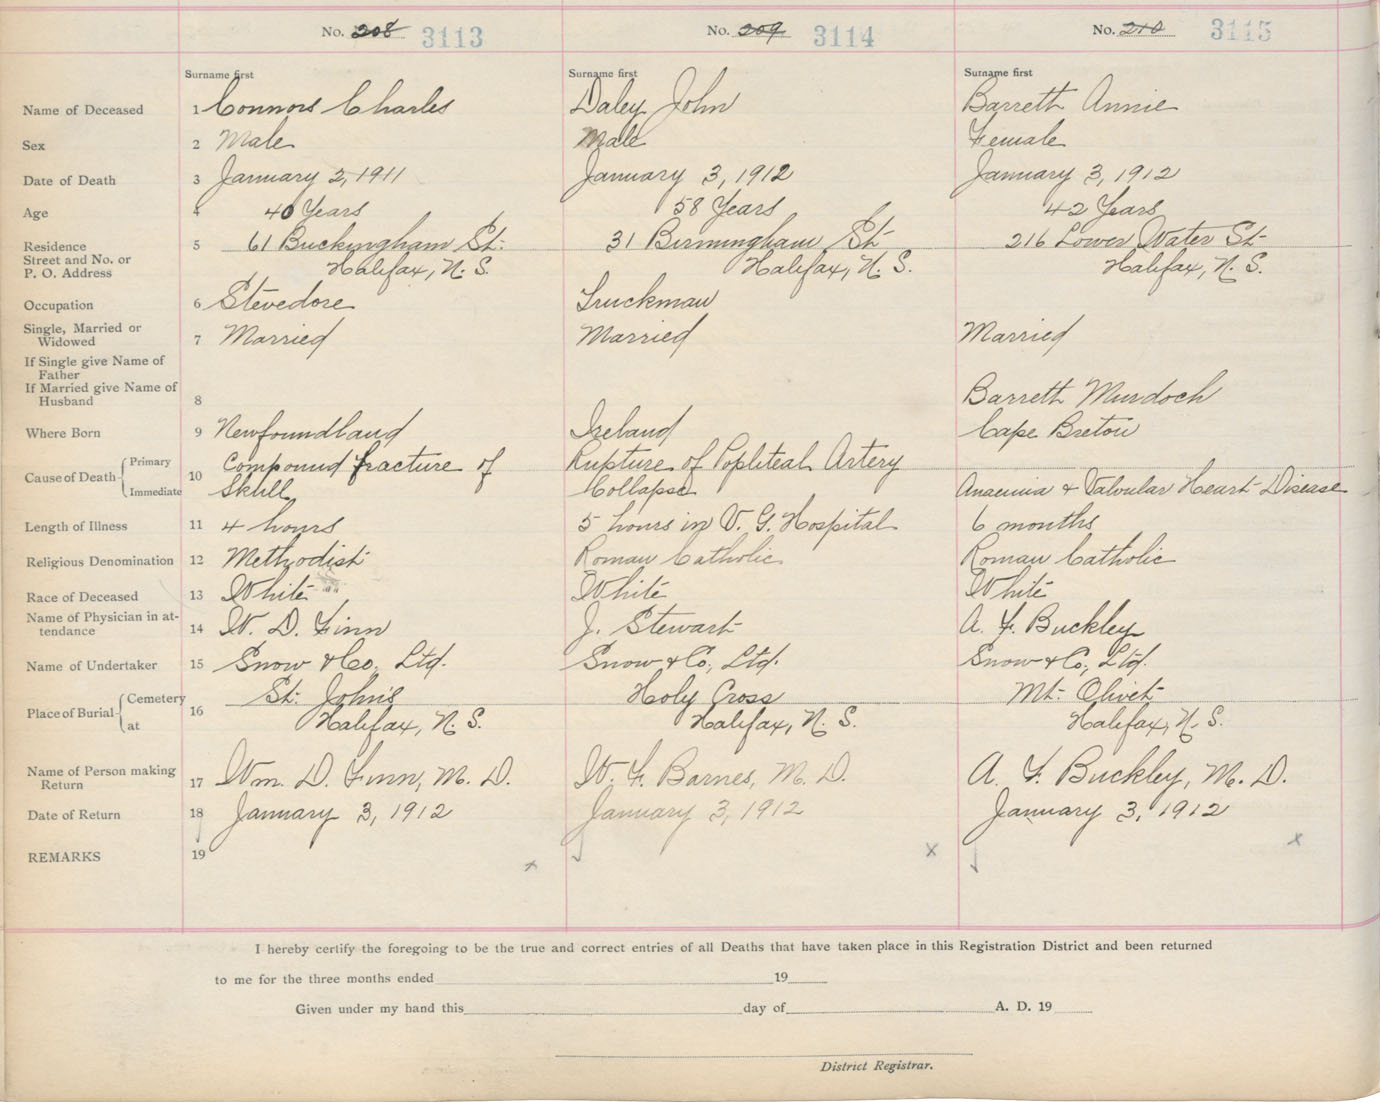 No. 208 3113 No. 209 3114 No. 210 3115
Surname first Surname first Surname first
Name of Deceased 1 Connors Charles Daley John Barrett Annie
Sex 2 Male Male Female
Date of Death 3 January 2, 1911 January 3, 1912 January 3, 1912
Age 4 40 Years 58 Years 42 Years
Residence 5 61 Buckingham St. 31 Birmingham St 216 Lower Water St
Street and No. or
P. O. Address Halifax, N. S. Halifax, N. S. Halifax, N. S.
Occupation 6 Stevedore Truckman
Single, Married or
Widowed 7 Married Married Married
If Single give Name of
Father
If Married give Name of
Husband 8 Barrett Murdoch
Where Born 9 Newfoundland Ireland Cape Breton
Primary Compound fracture of Rupture of Popliteal Artery
Cause of Death 10
Immediate Skull Collapse Anaemia & Valvular Heart Disease
Length of Illness 11 4 hours 5 hours in V. G. Hospital 6 months
Religious Denomination 12 Methodist Roman Catholic Roman Catholic
Race of Deceased 13 White White White
Name of Physician in at-
tendance 14 W. D. Finn J. Stewart A. F. Buckley
Name of Undertaker 15 Snow & Co, Ltd. Snow & Co, Ltd. Snow & Co, Ltd.
Cemetery St. John's Holy Cross Mt. Olivet
Place of Burial 16
at Halifax, N. S. Halifax, N. S. Halifax, N. S.
Name of Person making
Return 17 Wm. D. Finn, M. D. W. F. Barnes, M. D. A. F. Buckley, M. D.
Date of Return 18 January 3, 1912 January 3, 1912 January 3, 1912
REMARKS 19 x x x
I hereby certify the foregoing to be the true and correct entries of all Deaths that have taken place in this Registration District and been returned
to me for the three months ended 19
Given under my hand this day of A. D. 19
District Registrar.